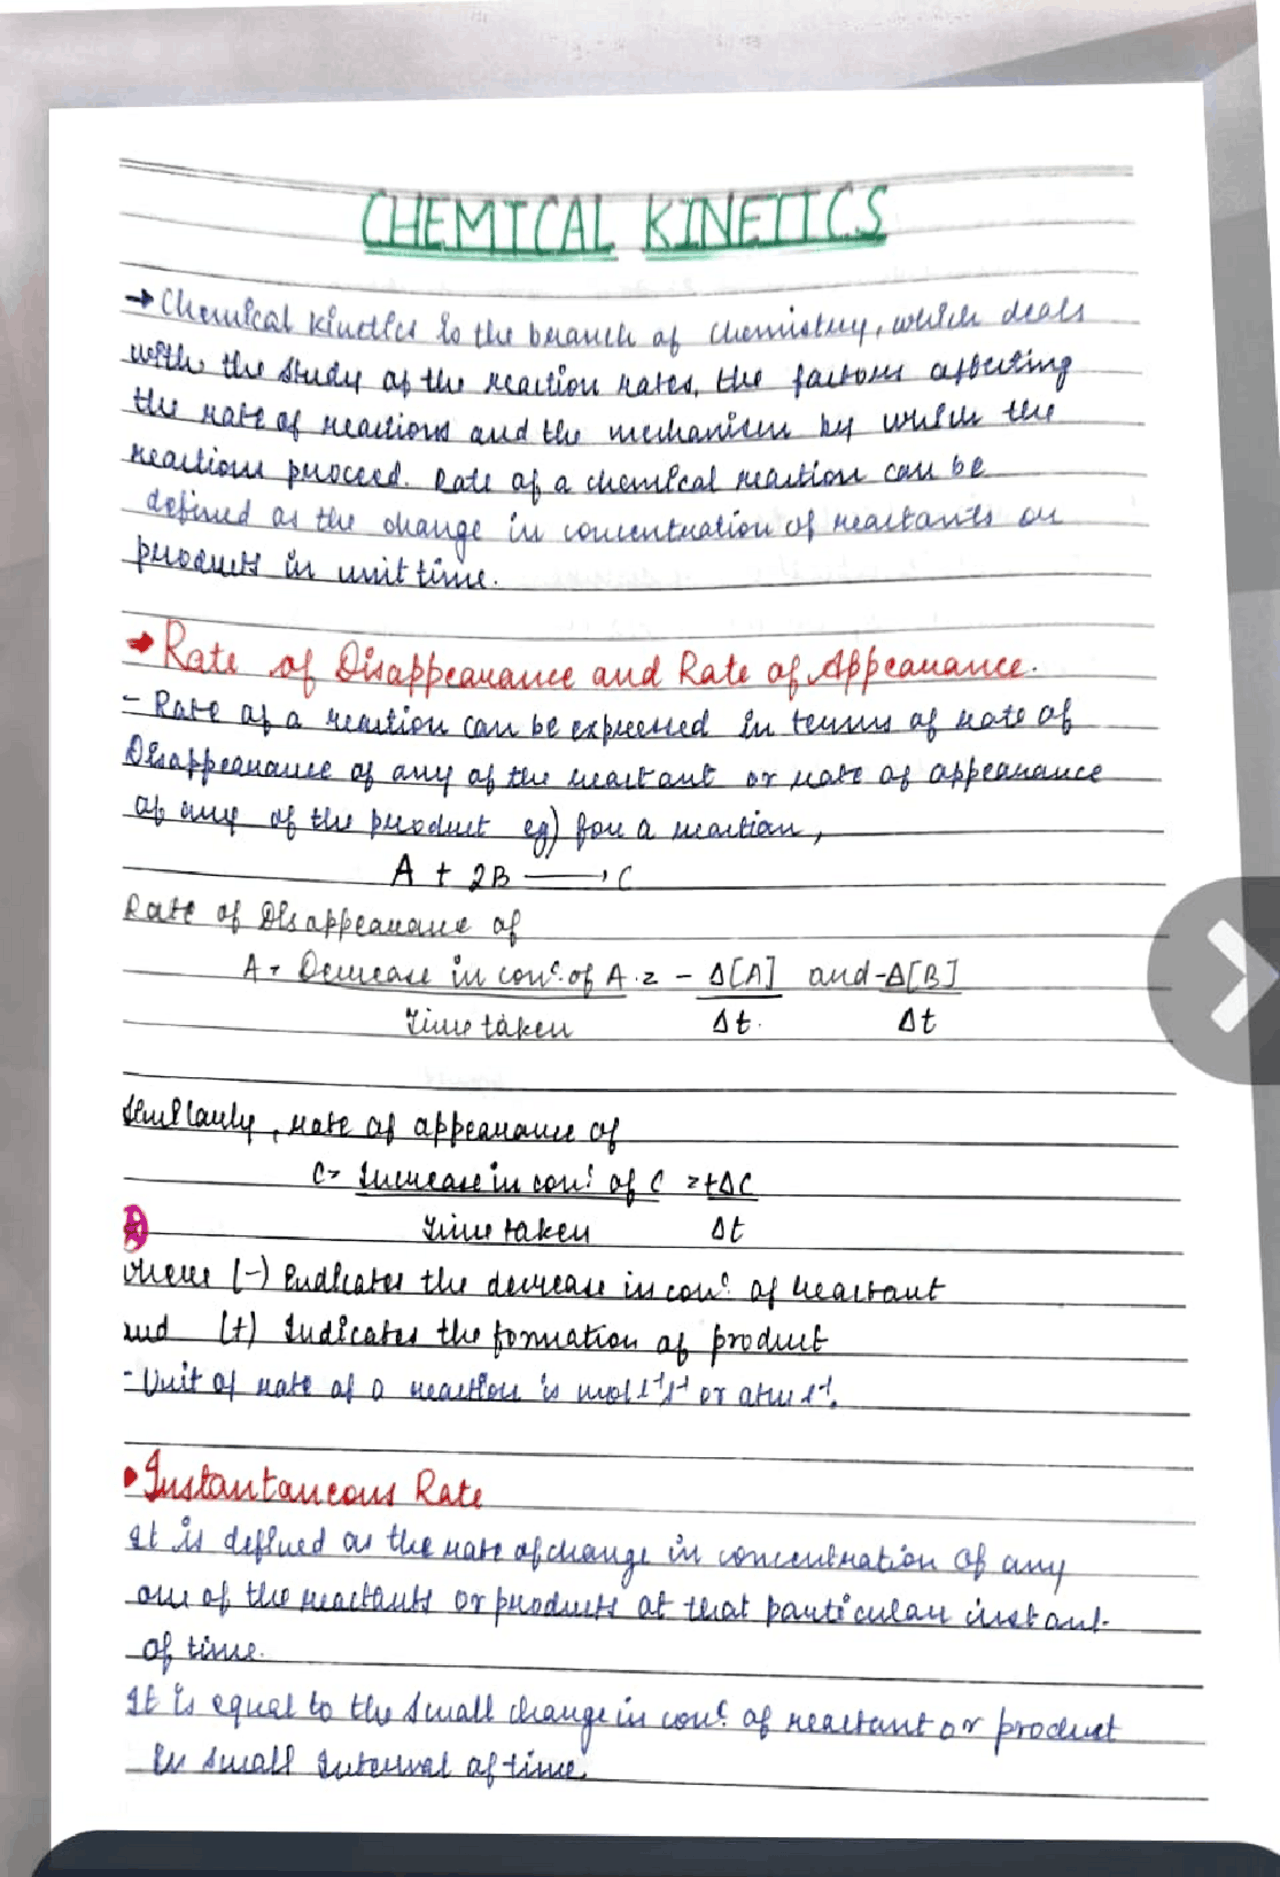 CHEMICAL KINETICS
→ Chemical kinetics is the branch of chemistry, which deals
with the study of the reaction rates, the factors affecting
the rate of reactions and the mechanism by which the
reactions proceed. Rate of a chemical reaction can be
defined as the change in concentration of reactants or
products in unit time.
→ Rate of Disappearance and Rate of Appearance.
- Rate of a reaction can be expressed in terms of rate of
Disappearance of any of the reactant or rate of appearance
of any of the product eg) for a reaction,
A + 2B ⟶ C
Rate of Disappearance of
A = Decrease in conc. of A = - Δ[A] and -Δ[B]
Time taken Δt. Δt
Similarly, rate of appearance of
C = Increase in conc. of C = +ΔC
Time taken Δt
where (-) Indicates the decrease in conc. of reactant
and (+) Indicates the formation of product
- Unit of rate of a reaction is mol l⁻¹s⁻¹ or atm s⁻¹.
• Instantaneous Rate
It is defined as the rate of change in concentration of any
one of the reactants or products at that particular instant.
of time.
It is equal to the small change in conc. of reactant or product
in small interval of time.